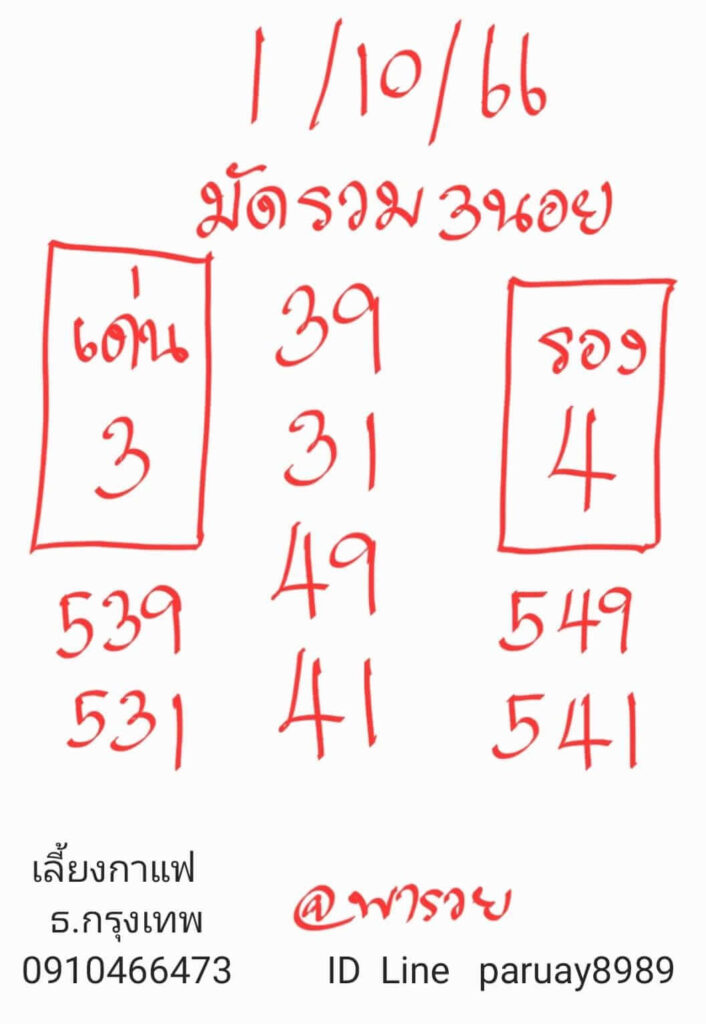 1/10/66
มัดรวม 3นอย
เด่น
3
539
531
39
31
49
41
รอง
4
549
541
เลี้ยงกาแฟ
ธ.กรุงเทพ
0910466473
@พารวย
ID Line paruay8989